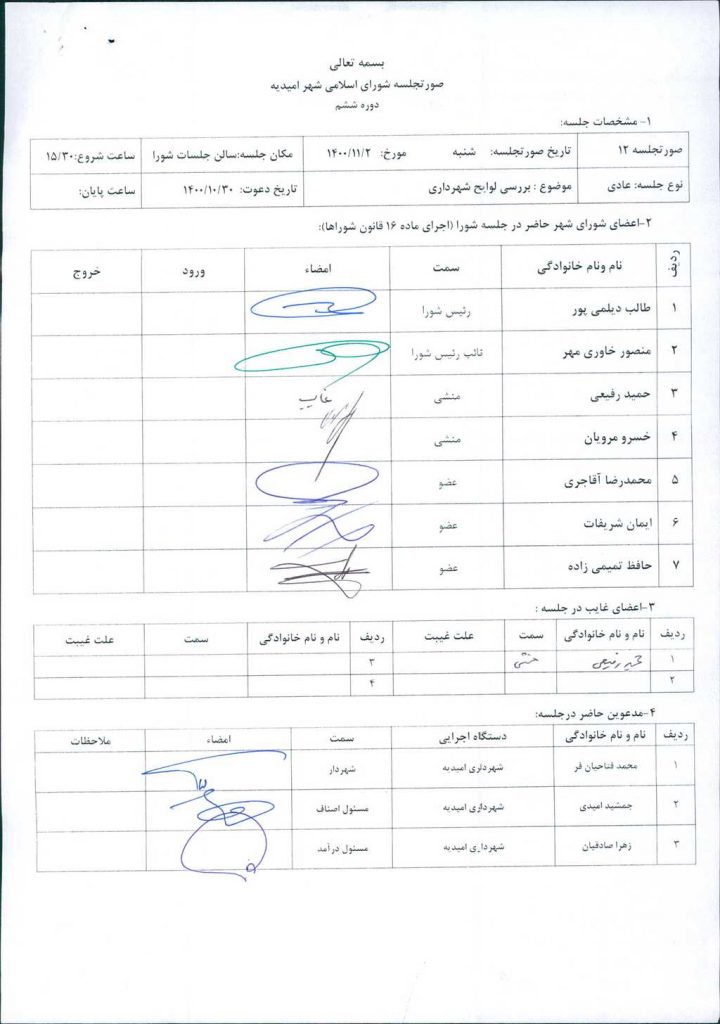 بسمه تعالی
صورتجلسه شورای اسلامی شهر امیدیه
دوره ششم
۱- مشخصات جلسه:
صورتجلسه ۱۲ تاریخ صورتجلسه: شنبه مورخ: ۱۴۰۰/۱۱/۲ مکان جلسه:سالن جلسات شورا ساعت شروع:۱۵/۳۰
نوع جلسه: عادی موضوع : بررسی لوایح شهرداری تاریخ دعوت: ۱۴۰۰/۱۰/۳۰ ساعت پایان:
۲-اعضای شورای شهر حاضر در جلسه شورا (اجرای ماده ۱۶ قانون شوراها):
ردیف نام ونام خانوادگی سمت امضاء ورود خروج
۱ طالب دیلمی پور رئیس شورا
۲ منصور خاوری مهر نائب رئیس شورا
۳ حمید رفیعی منشی غایب
۴ خسرو مرویان منشی
۵ محمدرضا آقاجری عضو
۶ ایمان شریفات عضو
۷ حافظ تمیمی زاده عضو
۳-اعضای غایب در جلسه :
ردیف نام و نام خانوادگی سمت علت غیبت ردیف نام و نام خانوادگی سمت علت غیبت
۱ حمید رفیعی منشی ۳
۲ ۴
۴-مدعوین حاضر درجلسه:
ردیف نام و نام خانوادگی دستگاه اجرایی سمت امضاء ملاحظات
۱ محمد فتاحیان فر شهرداری امیدیه شهردار
۲ جمشید امیدی شهرداری امیدیه مسئول اصناف
۳ زهرا صادقیان شهرداری امیدیه مسئول درآمد